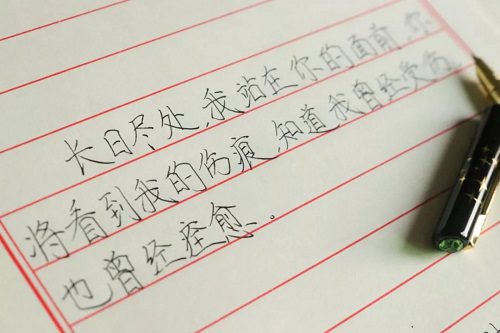 长日尽处,我站在你的面前,你
将看到我的伤痕,知道我曾经受伤,
也曾经痊愈。